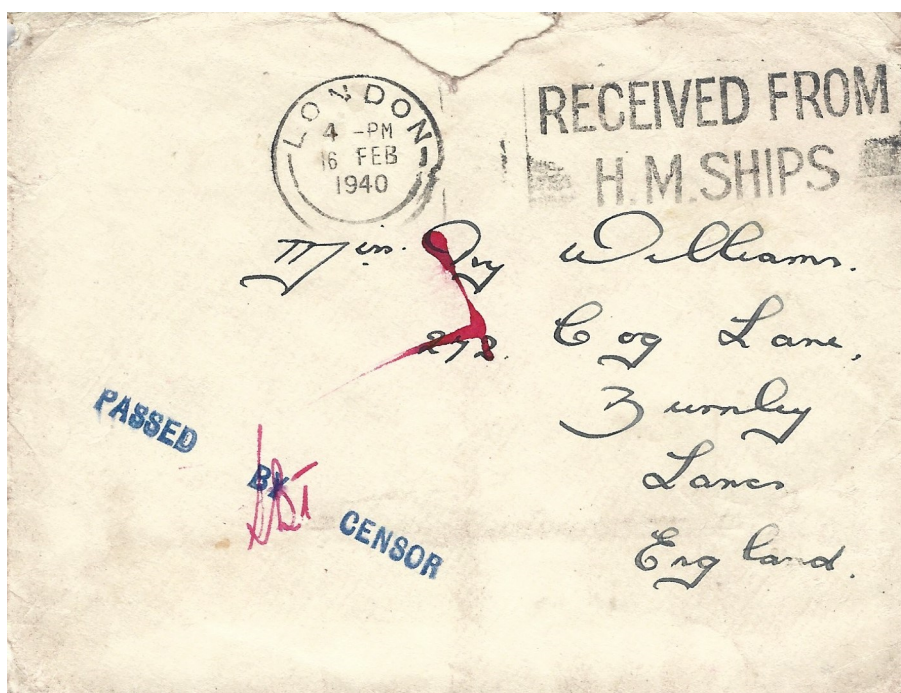 LONDON
4 -PM
16 FEB
1940
RECEIVED FROM
H.M.SHIPS
Miss. Williams.
Cog Lane,
Burnley
Lancs
England.
PASSED
BY
CENSOR